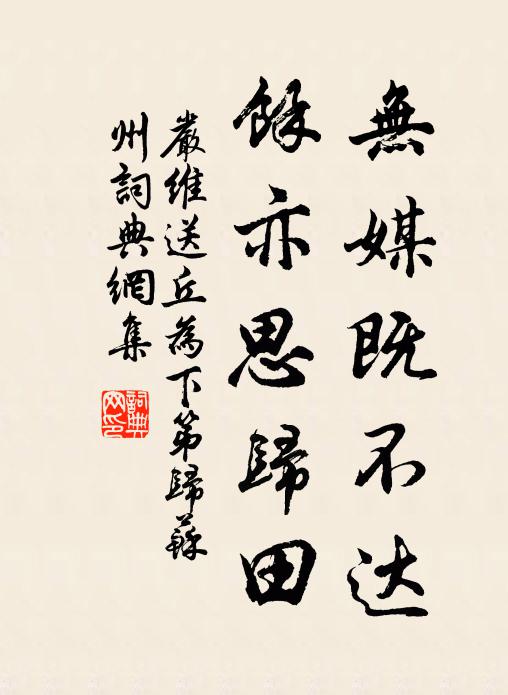 無媒既不达
餘亦思歸田
嚴維送丘為下第歸蘇
州詞典網集
詞典
网印